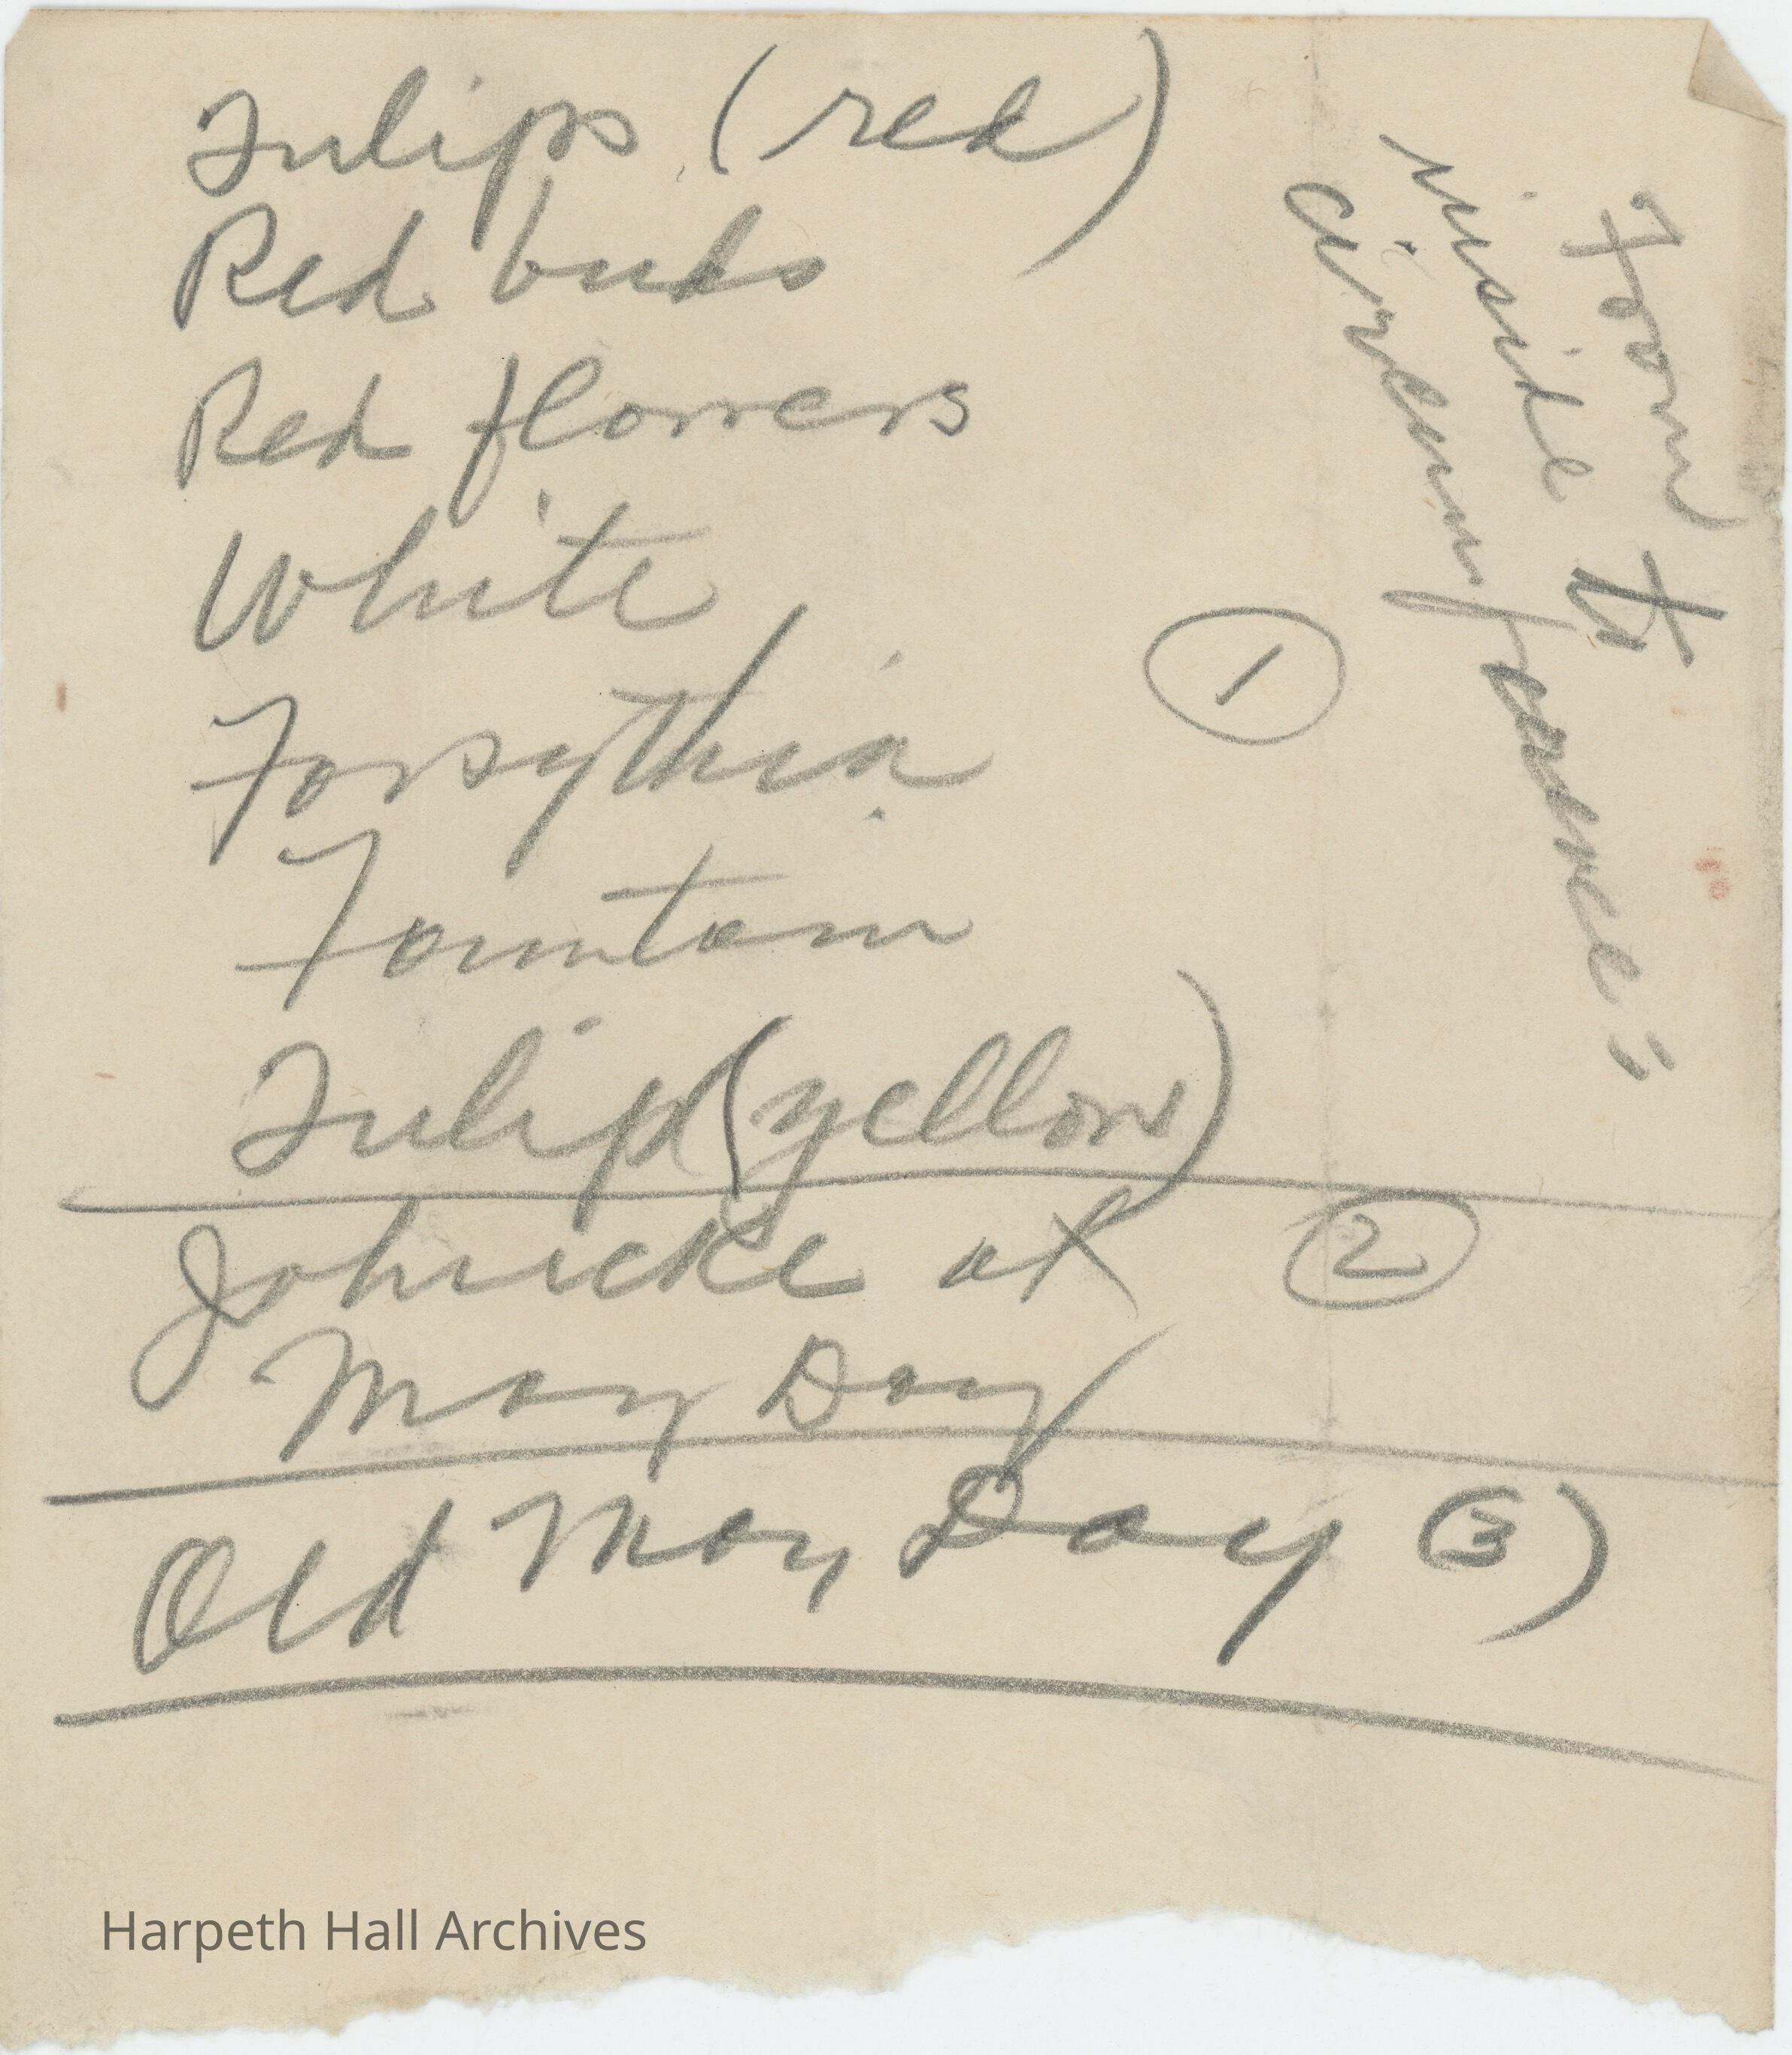 Tulips (red)
Red buds
Red flowers
White
Forsythia
Fountain
Tulip (yellow)
①
From
inside to
circumference"
Johnicke at ②
May Day
Old May Day (3)
Harpeth Hall Archives